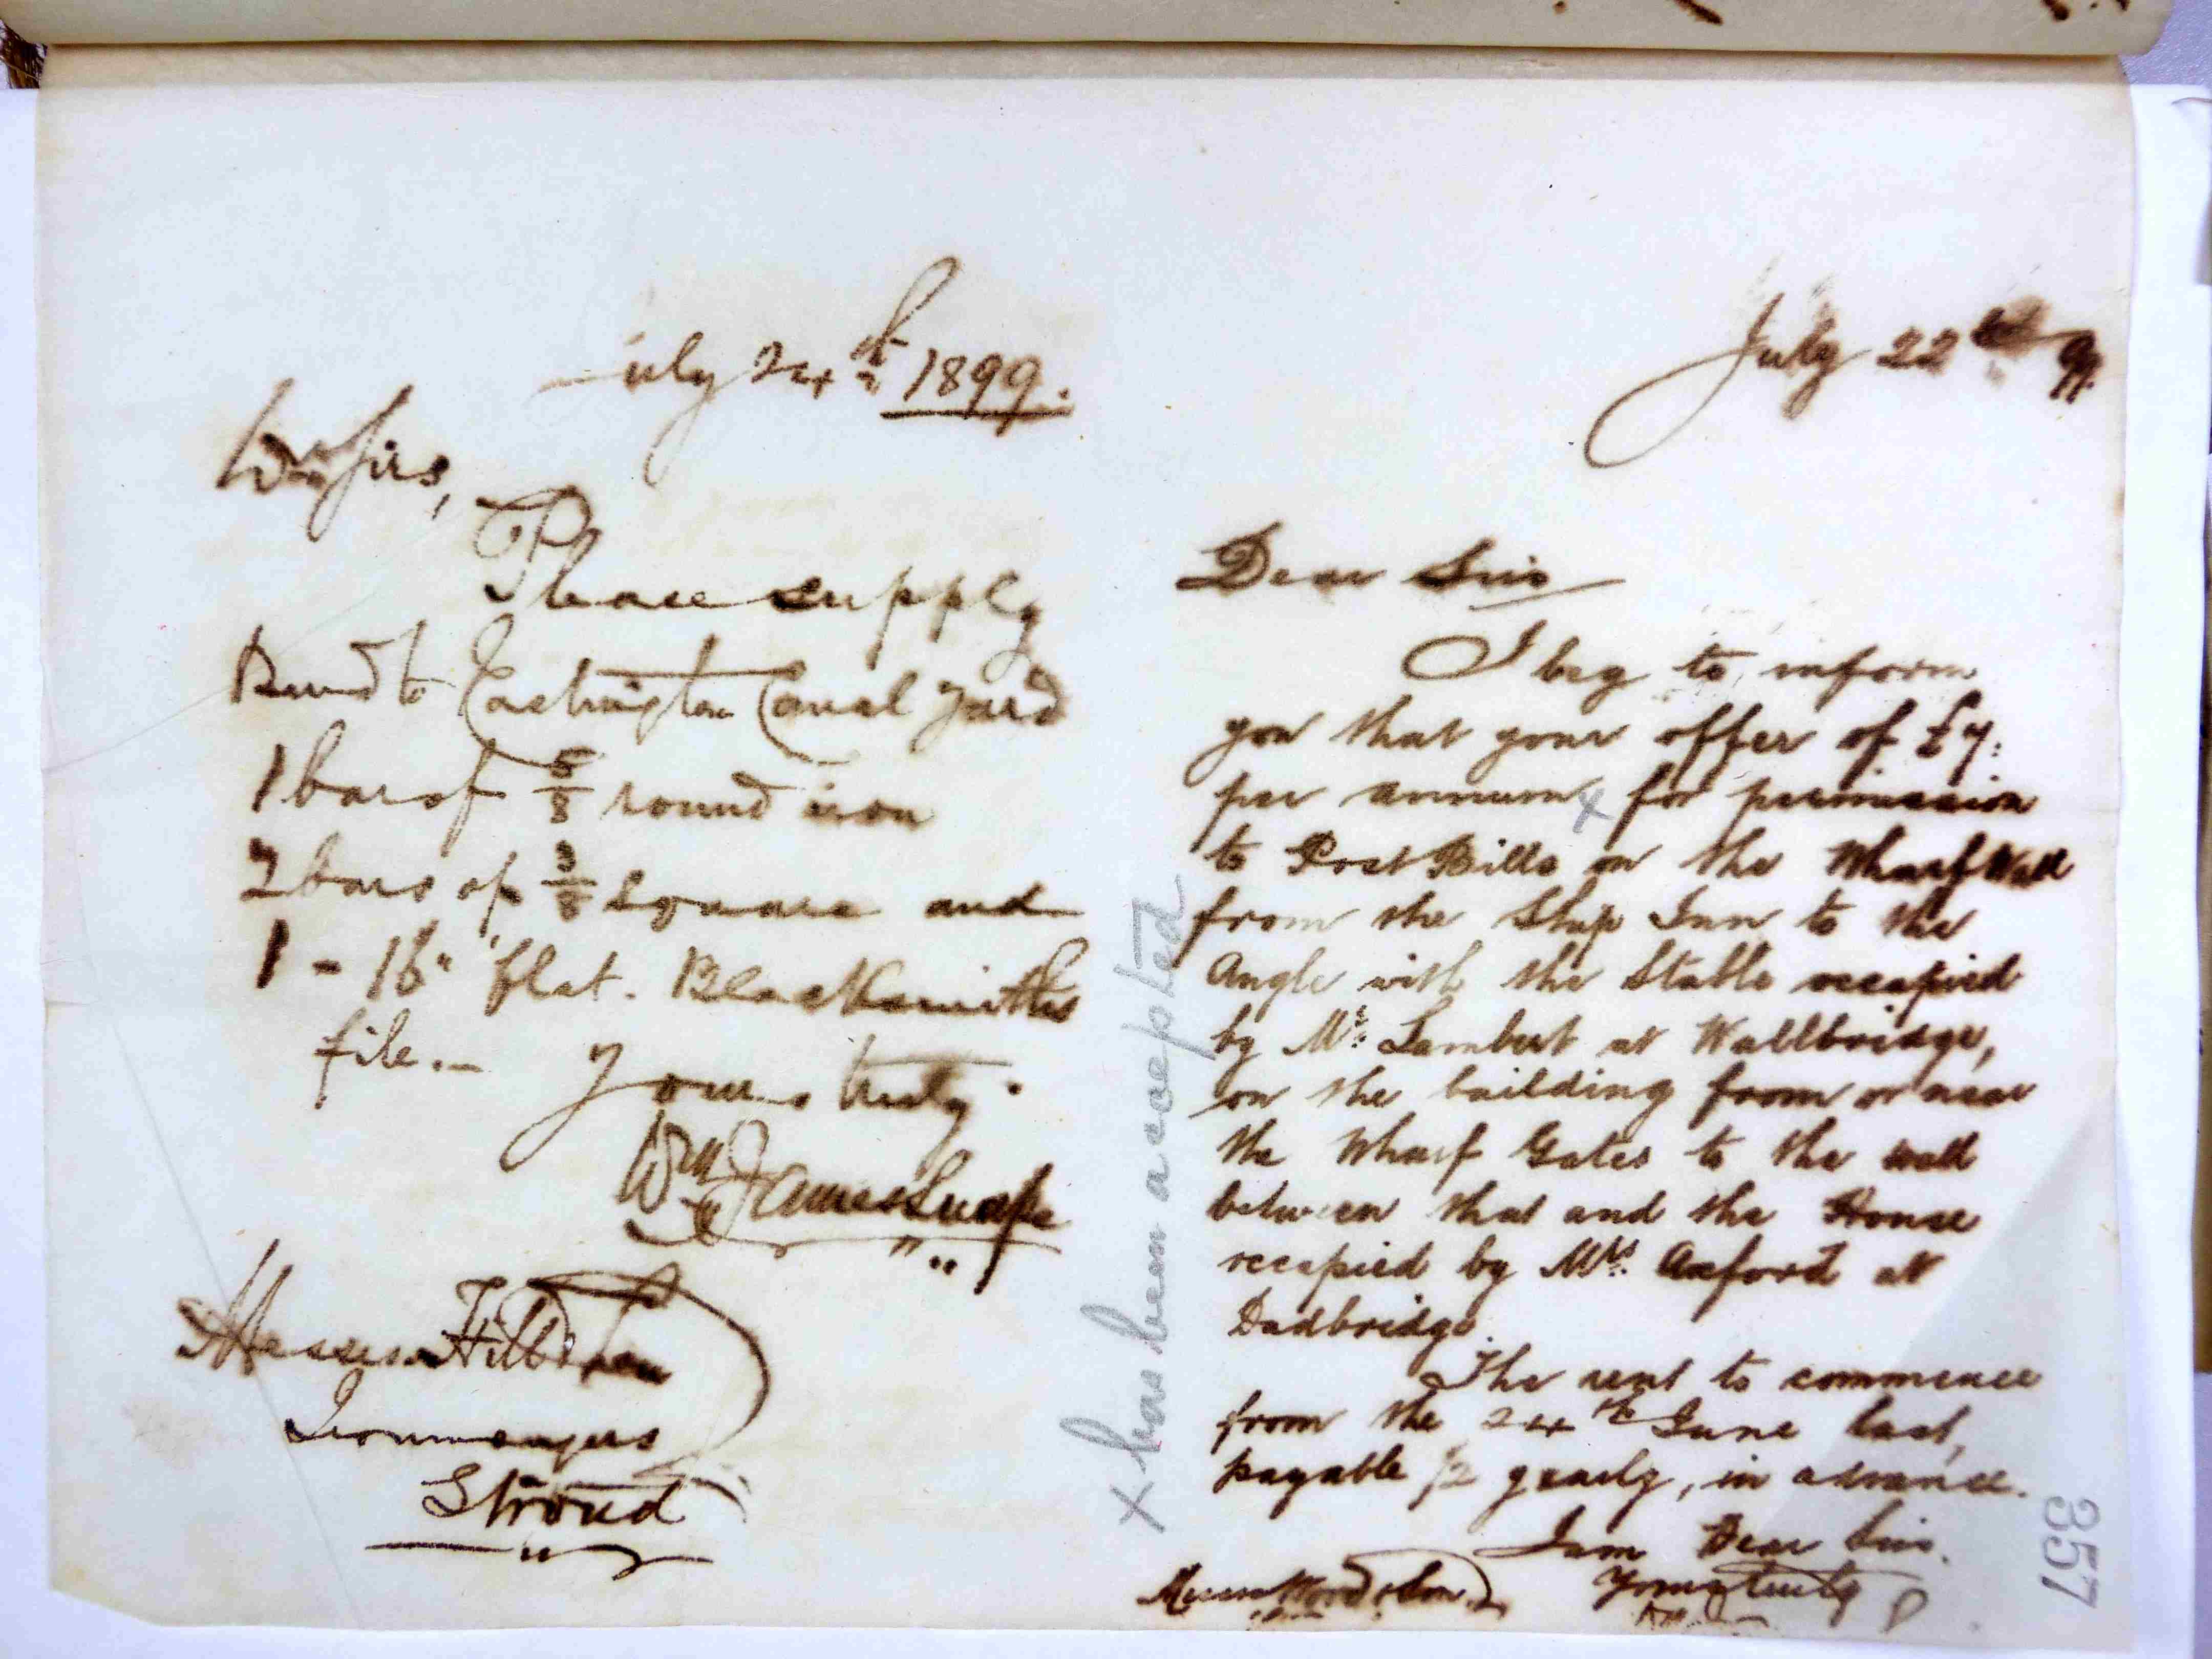 July 24th 1899.
Dr Sirs,
Please supply
& send to Eastington Canal Yard
1 bar of 5/8 round iron
2 bars of 3/8 square and
1 - 16" flat. Blacksmiths
file.-
Yours truly
Wm James Snape
Messrs
Ironmongers
Stroud
July 22 99.
Dear Sirs
I beg to inform
you that your offer of £7:
per annum x for permission
to Post Bills on the Wharf Wall
from the Ship Inn to the
Angle with the Stable occupied
by Mr: Lambert at Wallbridge,
on the building from or near
the Wharf Gates to the wall
between that and the House
occupied by Mrs. Axford at
Dudbridge.
The rent to commence
from the 24th June last,
payable 1/2 yearly, in advance.
I am Dear Sirs.
Yours truly
Messrs Wood & Son
x has been accepted
357